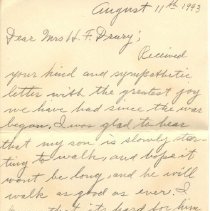 August 11th 1943
Dear Mrs H. F. Drury;
Received
your kind and sympathetic
letter with the greatest joy
we have had since the war
began. I was glad to hear
that my son is slowly star-
ting to walk, and hope it
wont be long, and he will
walk as good as ever. I
that its hard for him